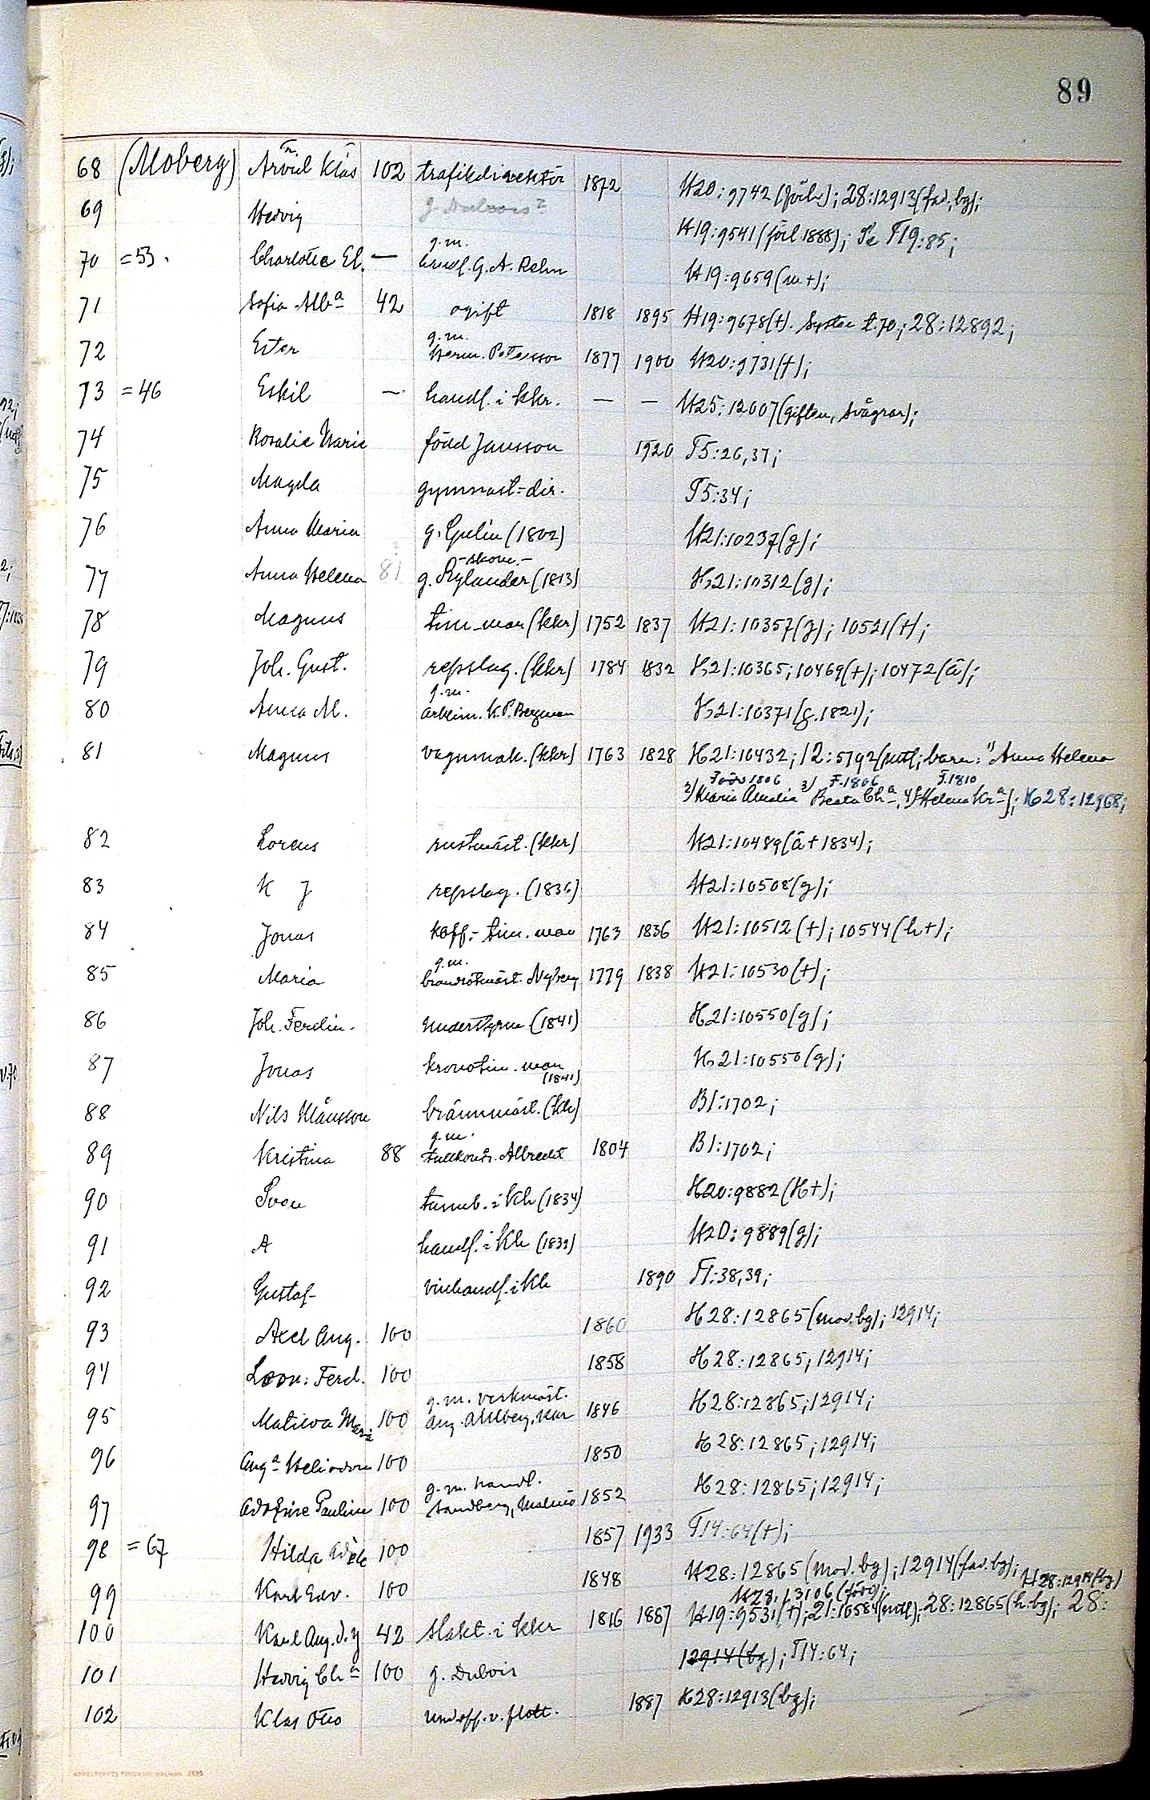 89
68 (Moberg) Arvid Klas 102 trafikdirektör 1872 H20:9742 (förl.); 28:12913 (fad. bg);
69 Hedvig g. Dubois? H19:9541 (förl 1888); Se T19:85;
g.m.
70 =53. Charlotte El. — handl. G. A. Rehn H19:9659 (m +);
71 Sofia Alb:a 42 ogift 1818 1895 H19:9678 (+). Syster t. 70; 28:12892;
g.m.
72 Ester Herm. Petersson 1877 1900 H20:9731 (+);
73 =46 Eskil — handl. i kkr. — — H25:12007 (giften, svågrar);
74 Rosalie Marie född Jansson 1920 T5:26,37;
75 Magda gymnast-dir. T5:34;
76 Anna Maria g. (1802) H21:10237 (g);
77 Anna Helena 81 g. Rylander (1813) H21:10312 (g);
78 Magnus tim-man (kkr) 1752 1837 H21:10357 (g); 10521 (+);
79 Joh. Gust. repslag. (kkr) 1784 1832 H21:10365; 10469 (+); 10472 (ä);
g.m.
80 Anna M. arbkm. K. P. Bergman H21:10371 (g. 1821);
81 Magnus vagnmak. (kkr) 1763 1828 H21:10432; 12:5792 (utl; barn: 1) Anna Helena
Född 1806 F. 1806 F. 1810
2) Maria Amalia 3) Beata Ch:a, 4) Helena Kr:a); H28:12968;
82 Lorens rustmäst. (kkr) H21:10489 (ä + 1834);
83 K J repslag. (1836) H21:10508 (g);
84 Jonas koff.- tim. man 1763 1836 H21:10512 (+); 10544 (h+);
g.m.
85 Maria Nyberg 1779 1838 H21:10530 (+);
86 Joh. Ferdin. understyrm (1841) H21:10550 (g);
87 Jonas kronotim. man H21:10550 (g);
(1841)
88 Nils Månsson brännmäst. (Kh) B1:1702;
g.m.
89 Kristina 88 Albrecht 1804 B1:1702;
90 Sven tunnb. i Kh (1834) H20:9882 (H+);
91 A handl. i Kh (1839) H20:9889 (g);
92 Gustaf vinhandl. i Kh 1890 T1:38,39;
93 Axel Aug. 100 1860 H28:12865 (mod. bg); 12914;
94 Leon. Ferd. 100 1858 H28:12865; 12914;
g.m. verkmäst.
95 Matilda M:ria 100 Aug. Ahlberg, kkr 1846 H28:12865; 12914;
96 Aug:a Heliodora 100 1850 H28:12865; 12914;
g.m. handl.
97 Adolfine Paulina 100 Sandberg, Malmö 1852 H28:12865; 12914;
98 =67 Hilda Adèle 100 1857 1933 T14:64 (+);
99 Karl Edv. 100 1848 H28:12865 (mod. bg); 12914 (fad. bg); H28:12914 (bg)
H28:13106 (förl);
100 Karl Aug. d. y 42 slakt. i kkr 1816 1887 H19:9531 (+); 21:10584 (utl); 28:12865 (h. bg); 28:
12914 (bg); T14:64;
101 Hedvig Ch:a 100 g. Dubois
102 Klas Otto undoff. v. flott. 1887 H28:12913 (bg);